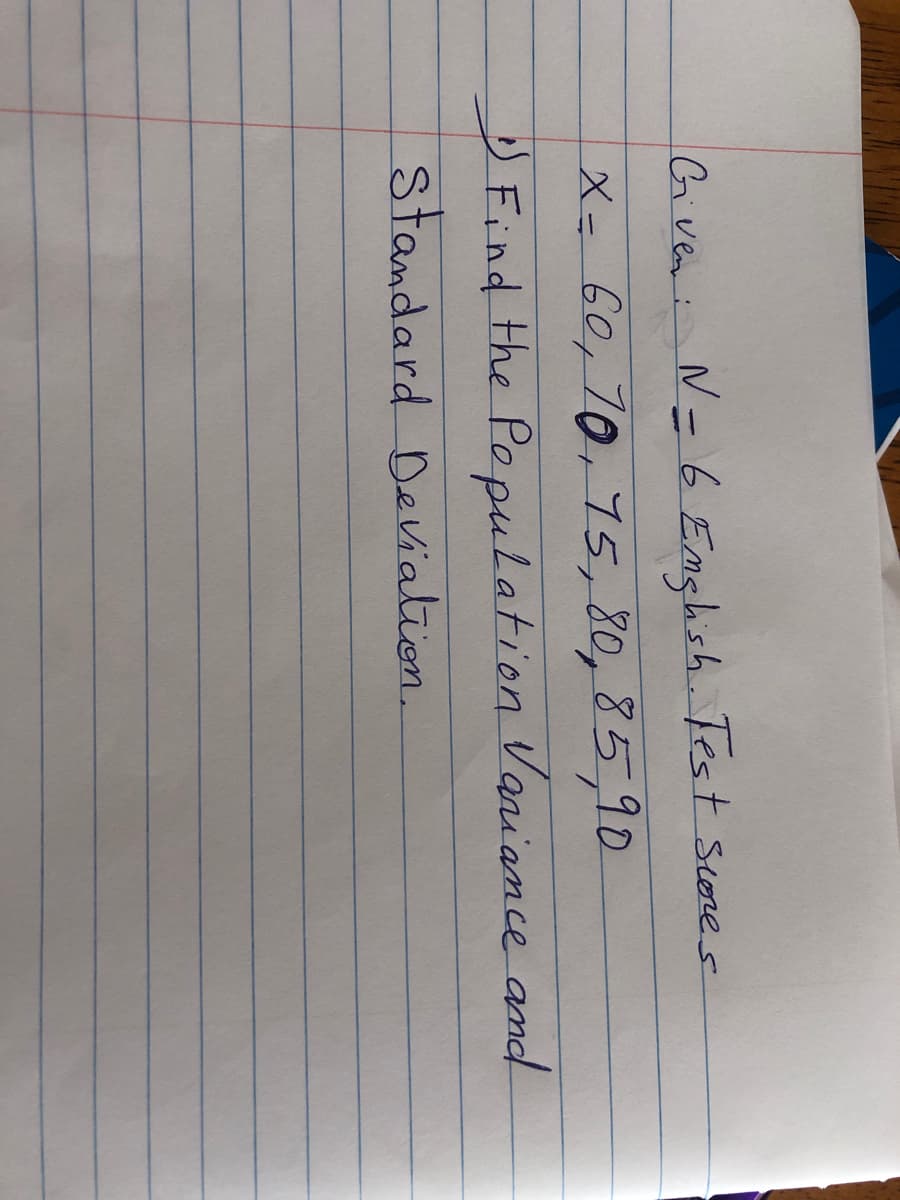 Given: N = 6 English. Test Scores
X = 60, 70, 75, 80, 85, 90
1) Find the Population Variance and
Standard Deviation.